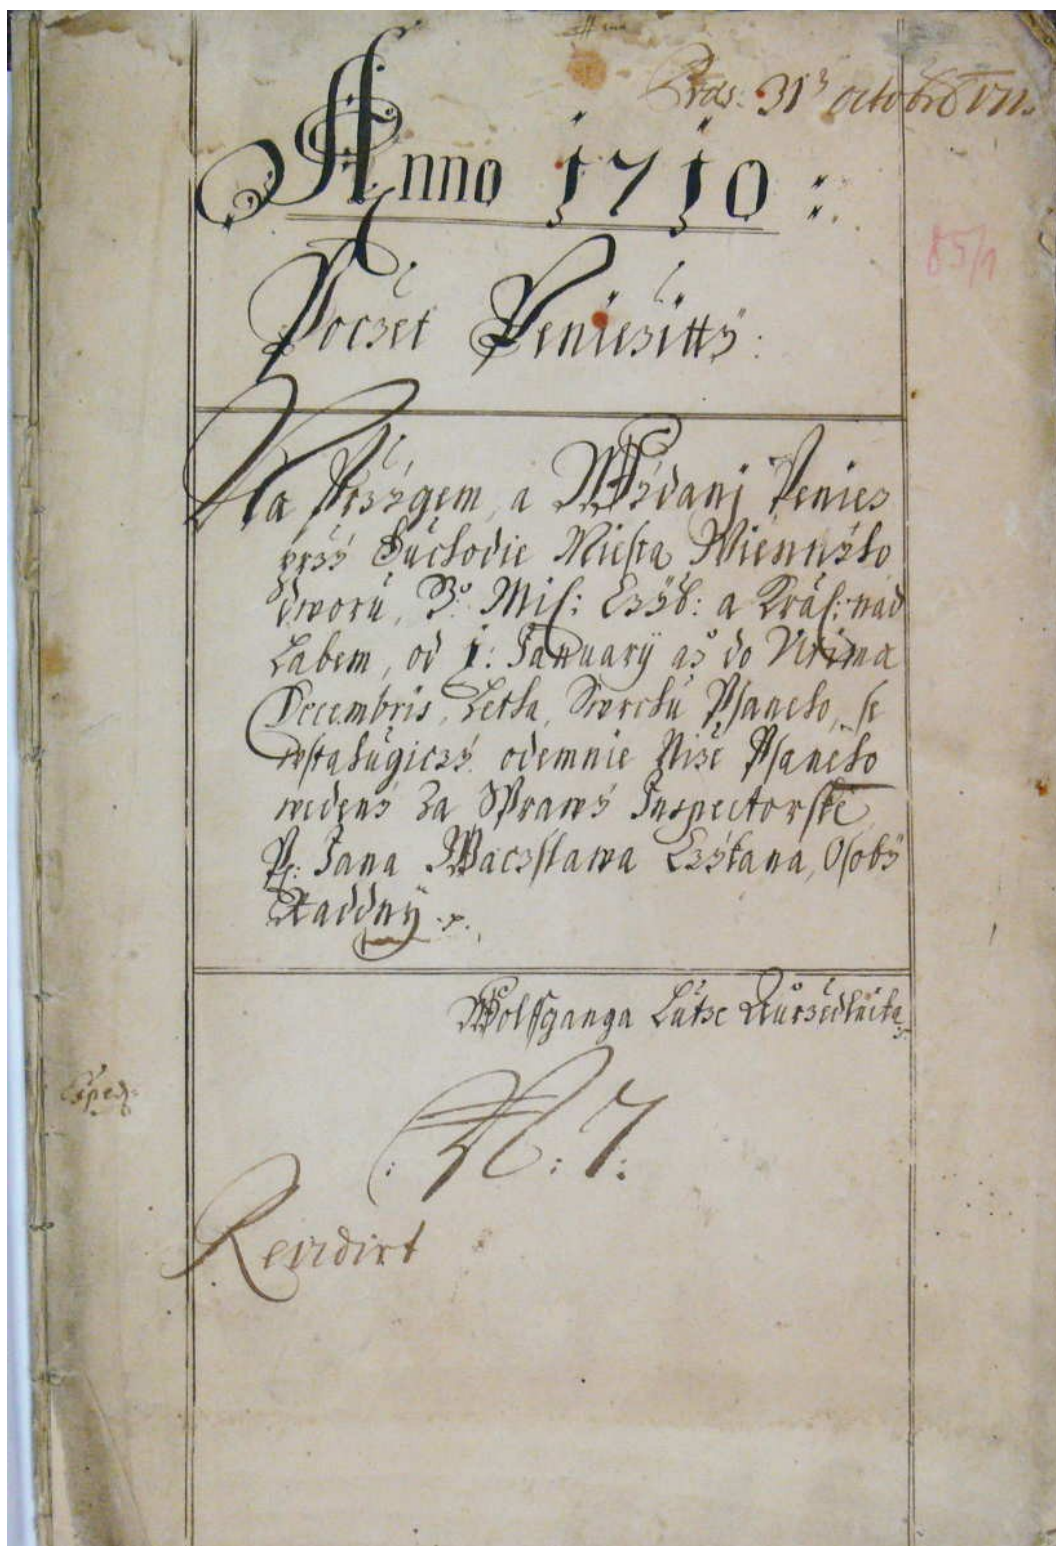 Præs: 31 octobris 1711.
Anno 1710:
Poczet Peniezitty:
Na Przygem, a Wydanj Peniez
przy Duchodie Miesta Wiennyho
dworu, J: Mil: Czys: a Kral: nad
Labem, od 1: January až do Ultima
Decembris, Letha, Swrchu Psaneho, se
wstahugiczy odemnie Niže Psaneho
wedeny Za Sprawy Inspectorske
P: Jana Waczslawa Czykana, Osoby
Raddny.
Wolffganga Lutze
Exped:
N: 7:
Revidirt
85/1